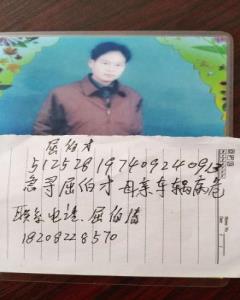 屈伯才
512528197409240912
急寻屈伯才母亲车祸病危
联系电话.屈伯清
18208228570